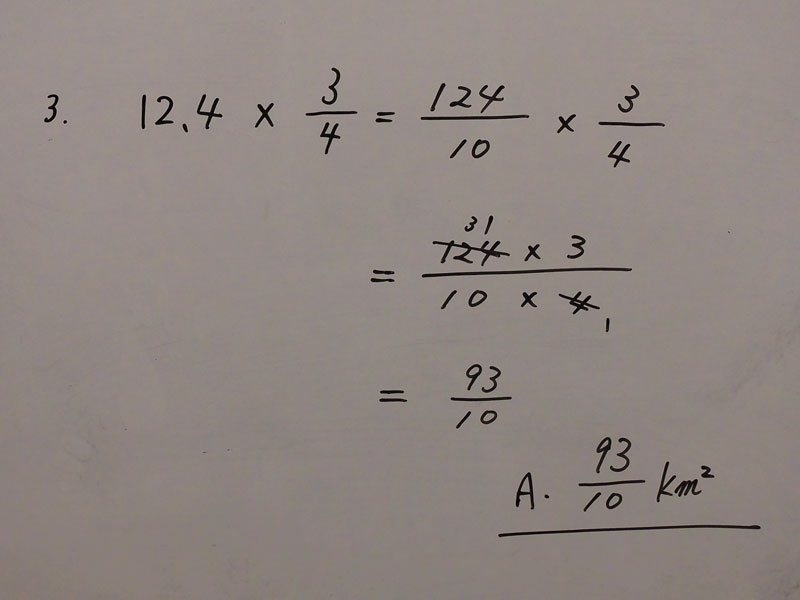 3. 12.4 × 3/4 = 124/10 × 3/4
= 31 124 × 3 / 10 × 4 1
= 93/10
A. 93/10 km²